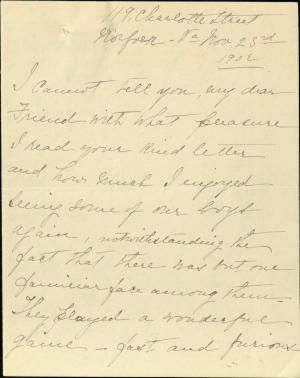 119. Charlotte Street
Norfolk - Va Nov 23rd
1902
I cannot tell you, my dear
Friend with what pleasure
I read your kind letter
and how much I enjoyed
seeing some of our boys
again, notwithstanding the
fact that there was but one
familiar face among them -
They played a wonderful
game - fast and furious